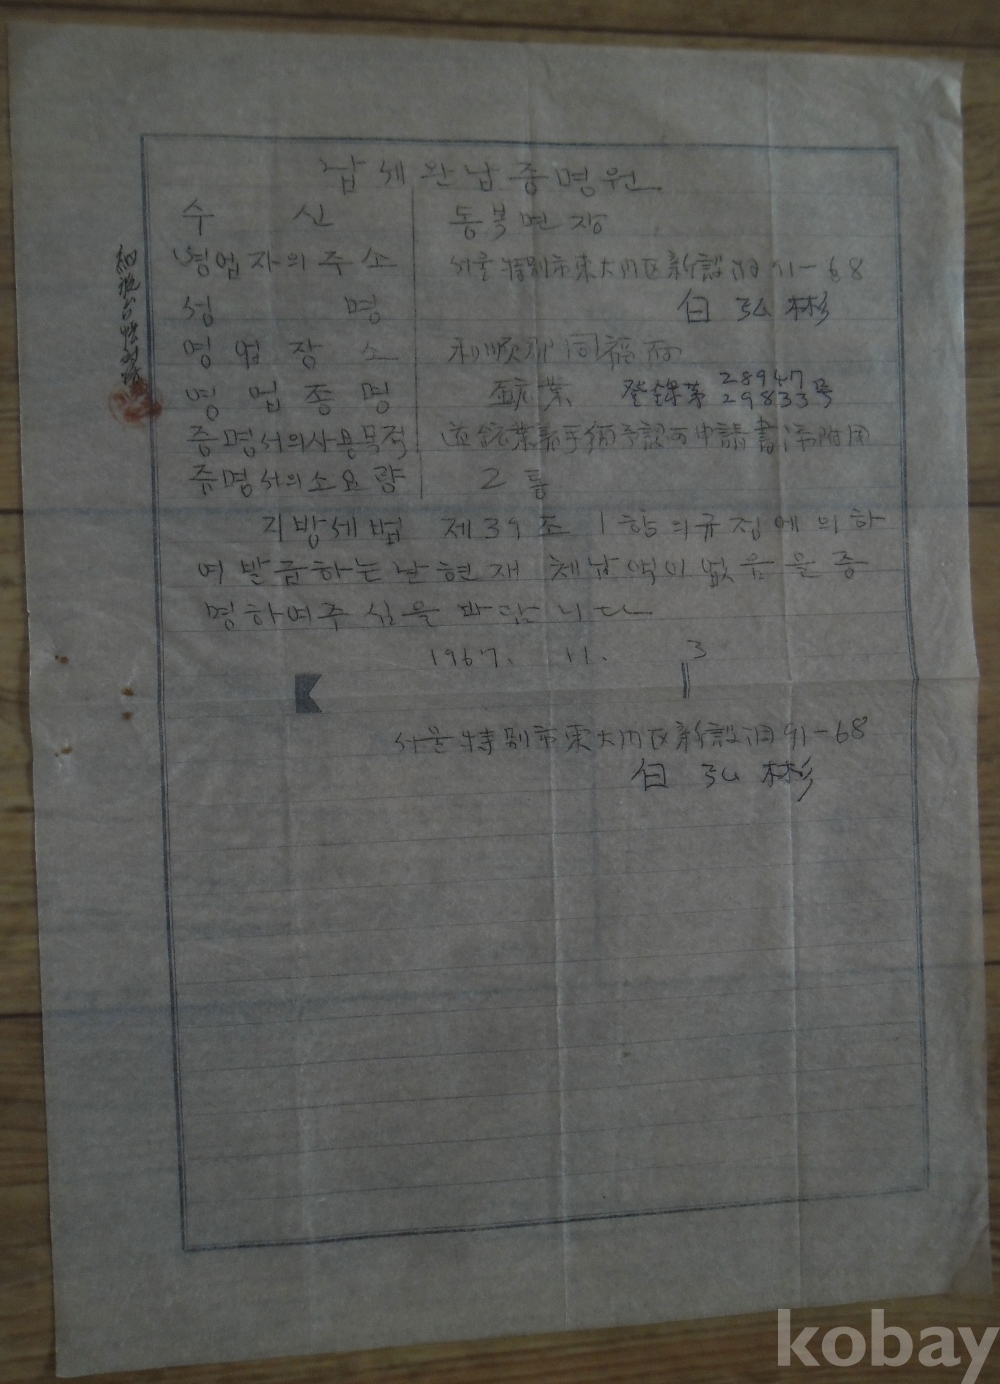 납세완납증명원
수 신 동복면장
영업자의주소 서울特別市東大门区新設洞91-68
성 명 白弘彬
영업장소 和順郡同福面
영업종명 鉱業 登錄第 28947 29833号
증명서의사용목적 鉱業 手續 認可申請書添附用
증명서의소요량 2통
지방세법 제39조 1항의규정에의하
여발급하는날현재 체납액이없음을증
명하여주심을바랍니다
1967. 11. 3
서울特別市東大门区新設洞91-68
白弘彬
kobay